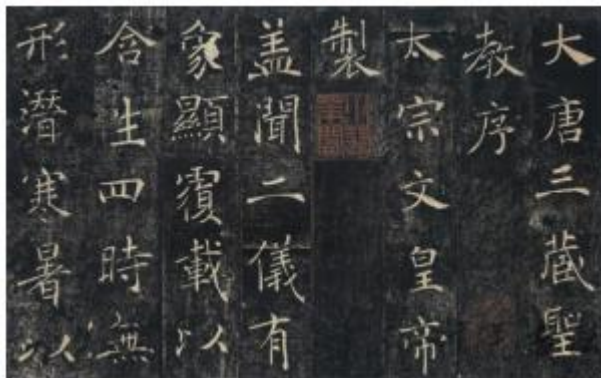 大唐三藏聖
教序
太宗文皇帝
製
蓋聞二儀有
象顯覆載以
含生四時無
形潛寒暑以